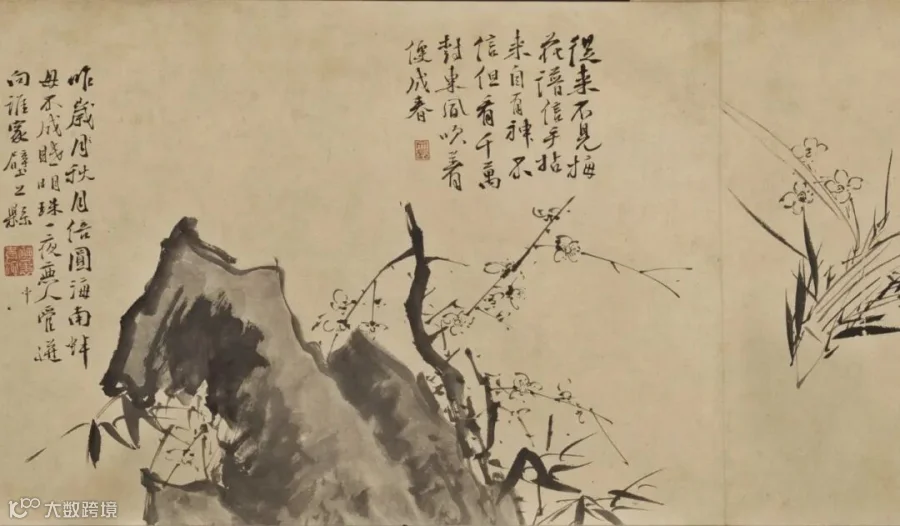 從来不見梅
花譜信手拈
来自有神不
信但看千萬
樹東風吹着
便成春
昨歲月秋月倍圓海南蚌
母不成眠明珠一夜無人管迸
向誰家壁上縣
中
大数跨境